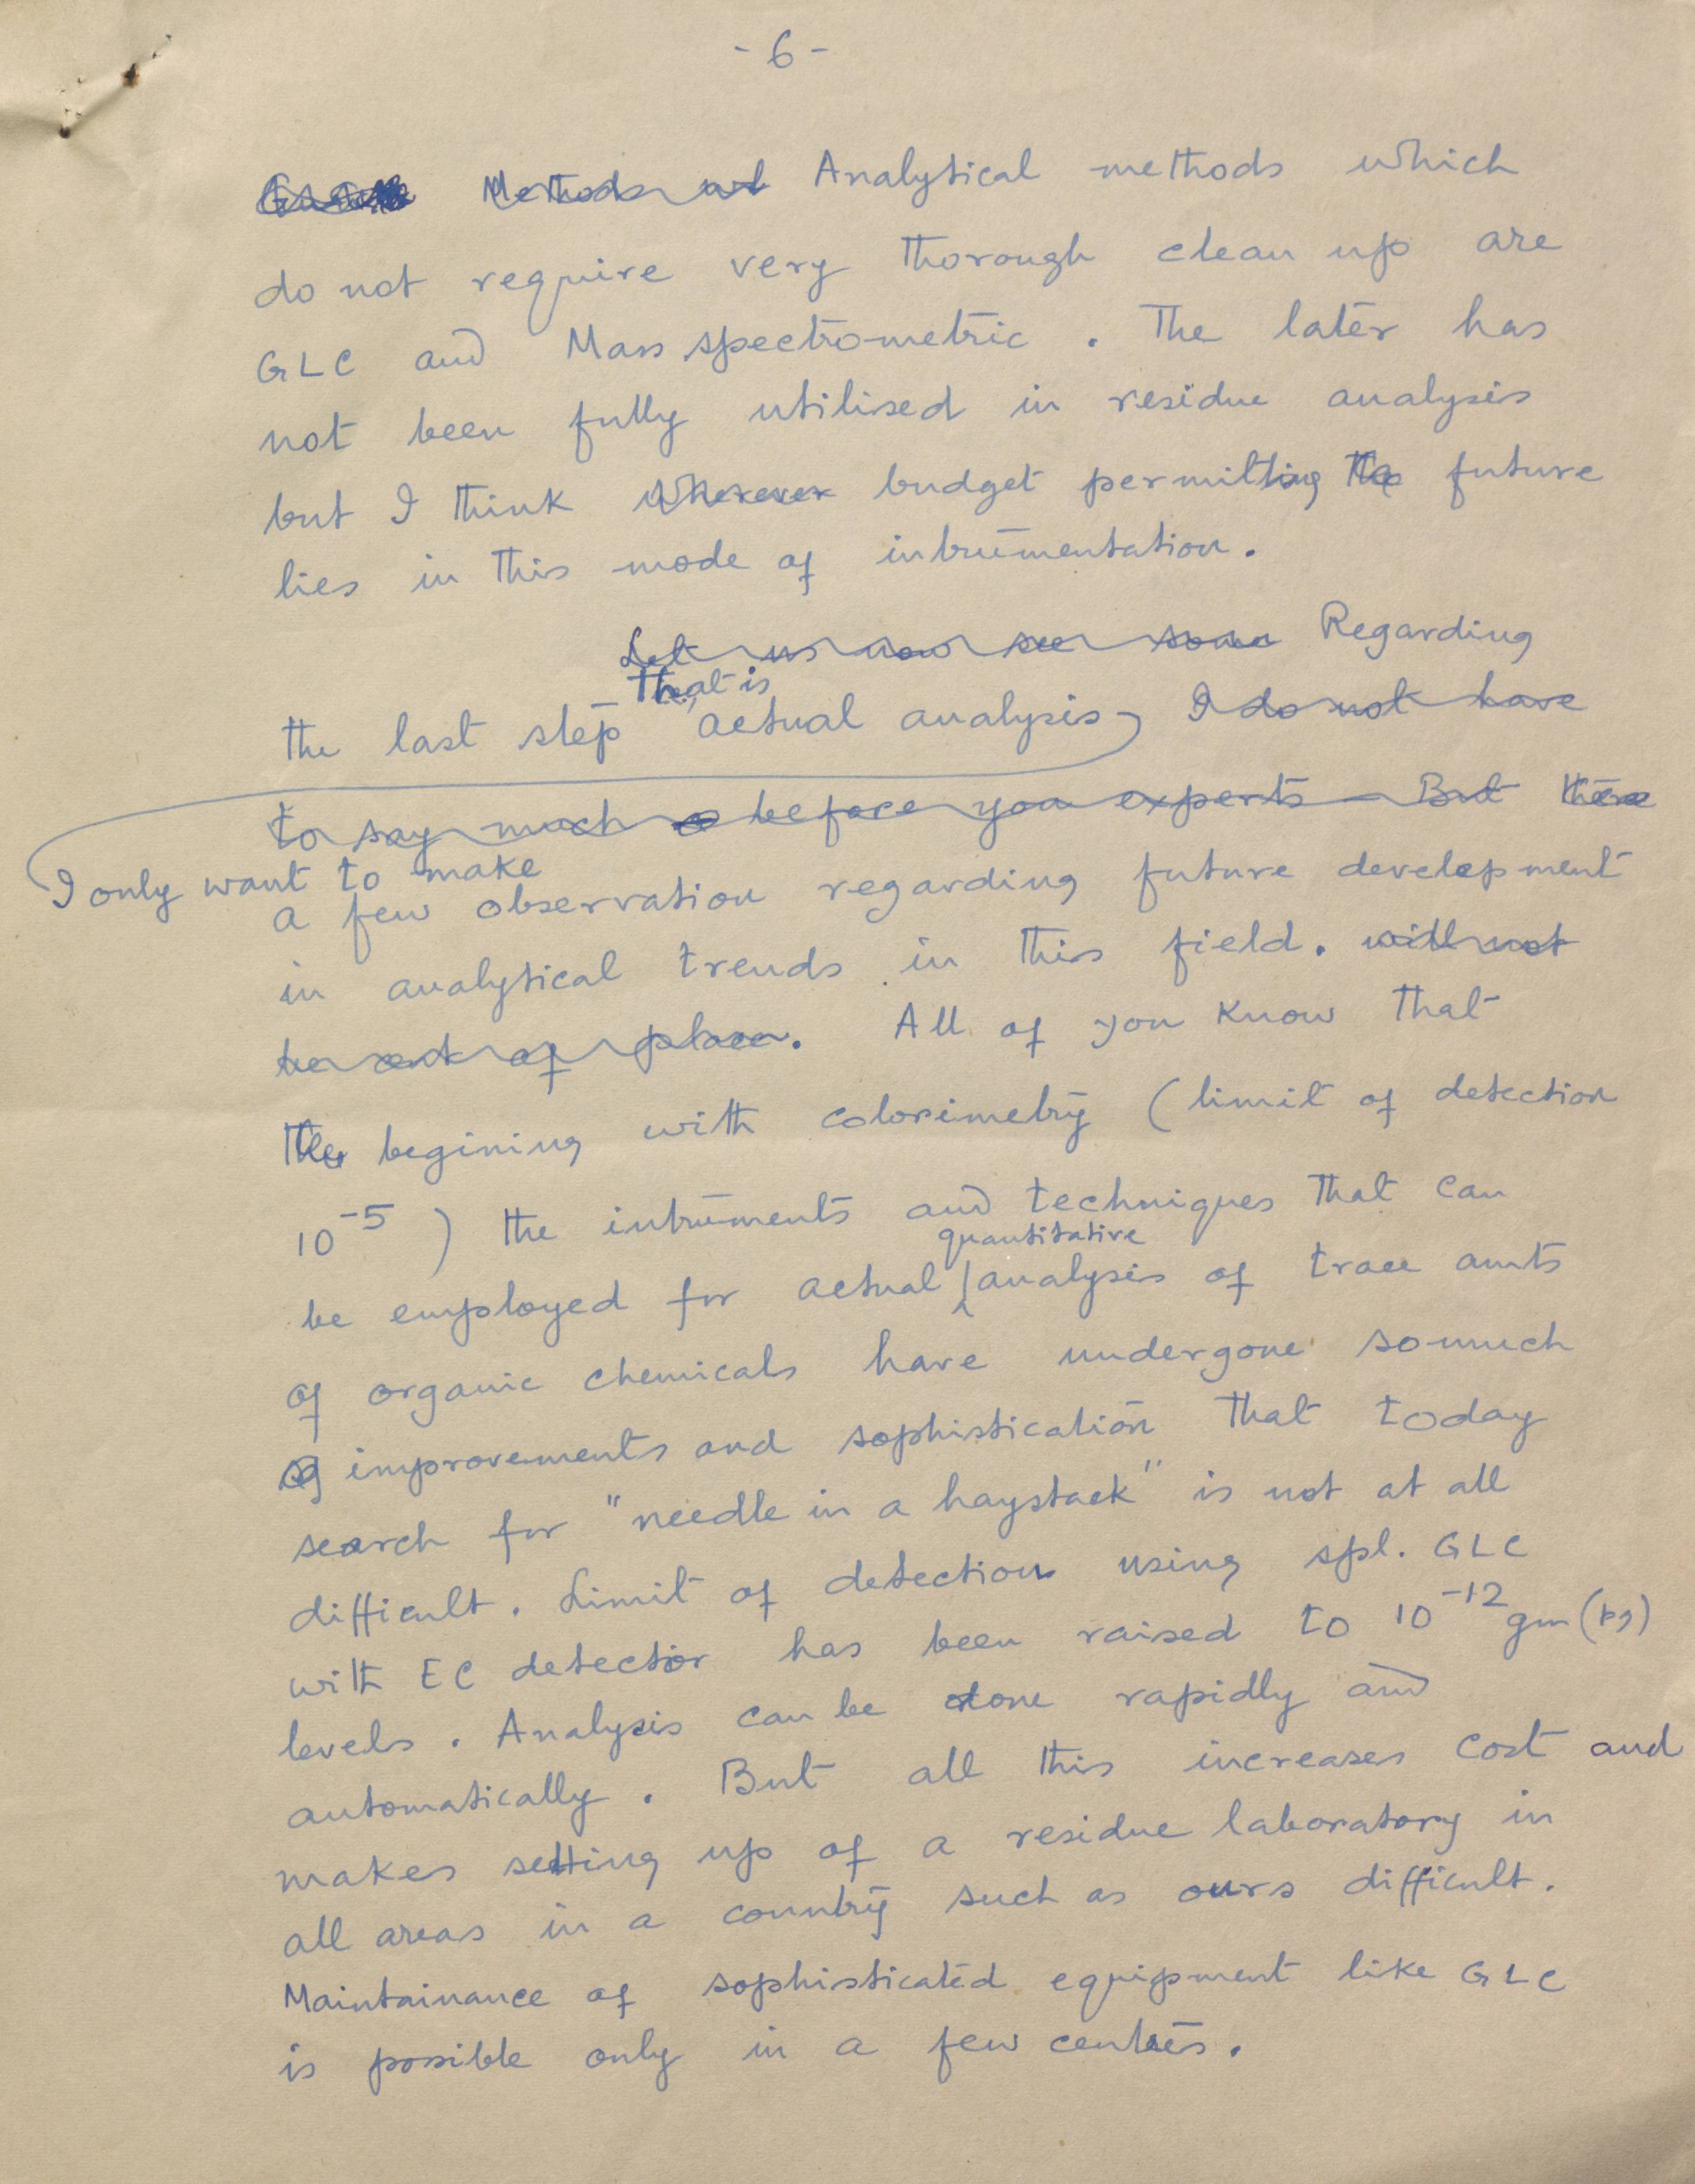 - 6 -
Methods and Analytical methods which
do not require very thorough clean up are
GLC and Mass spectrometric . The later has
not been fully utilised in residue analysis
but I think Wherever budget permitting the future
lies in this mode of intrumentation .
Let us now see some Regarding
That is
the last step actual analysis, I do not have
to say much before you experts – But there
I only want to make
a few observation regarding future development
in analytical trends in this field . will not
be out of place . All of you know that
The begining with colorimetry (limit of detection
10⁻⁵ ) the intruments and techniques that can
quantitative
be employed for actual analysis of trace amts
of organic chemicals have undergone somuch
of improvements and sophistication that today
search for "needle in a haystack" is not at all
difficult . Limit of detection using spl. GLC
with EC detector has been raised to 10⁻¹² gm (pg)
levels . Analysis can be done rapidly and
automatically . But all this increases cost and
makes setting up of a residue laboratory in
all areas in a country such as ours difficult .
Maintainance of sophisticated equipment like GLC
is possible only in a few centres .